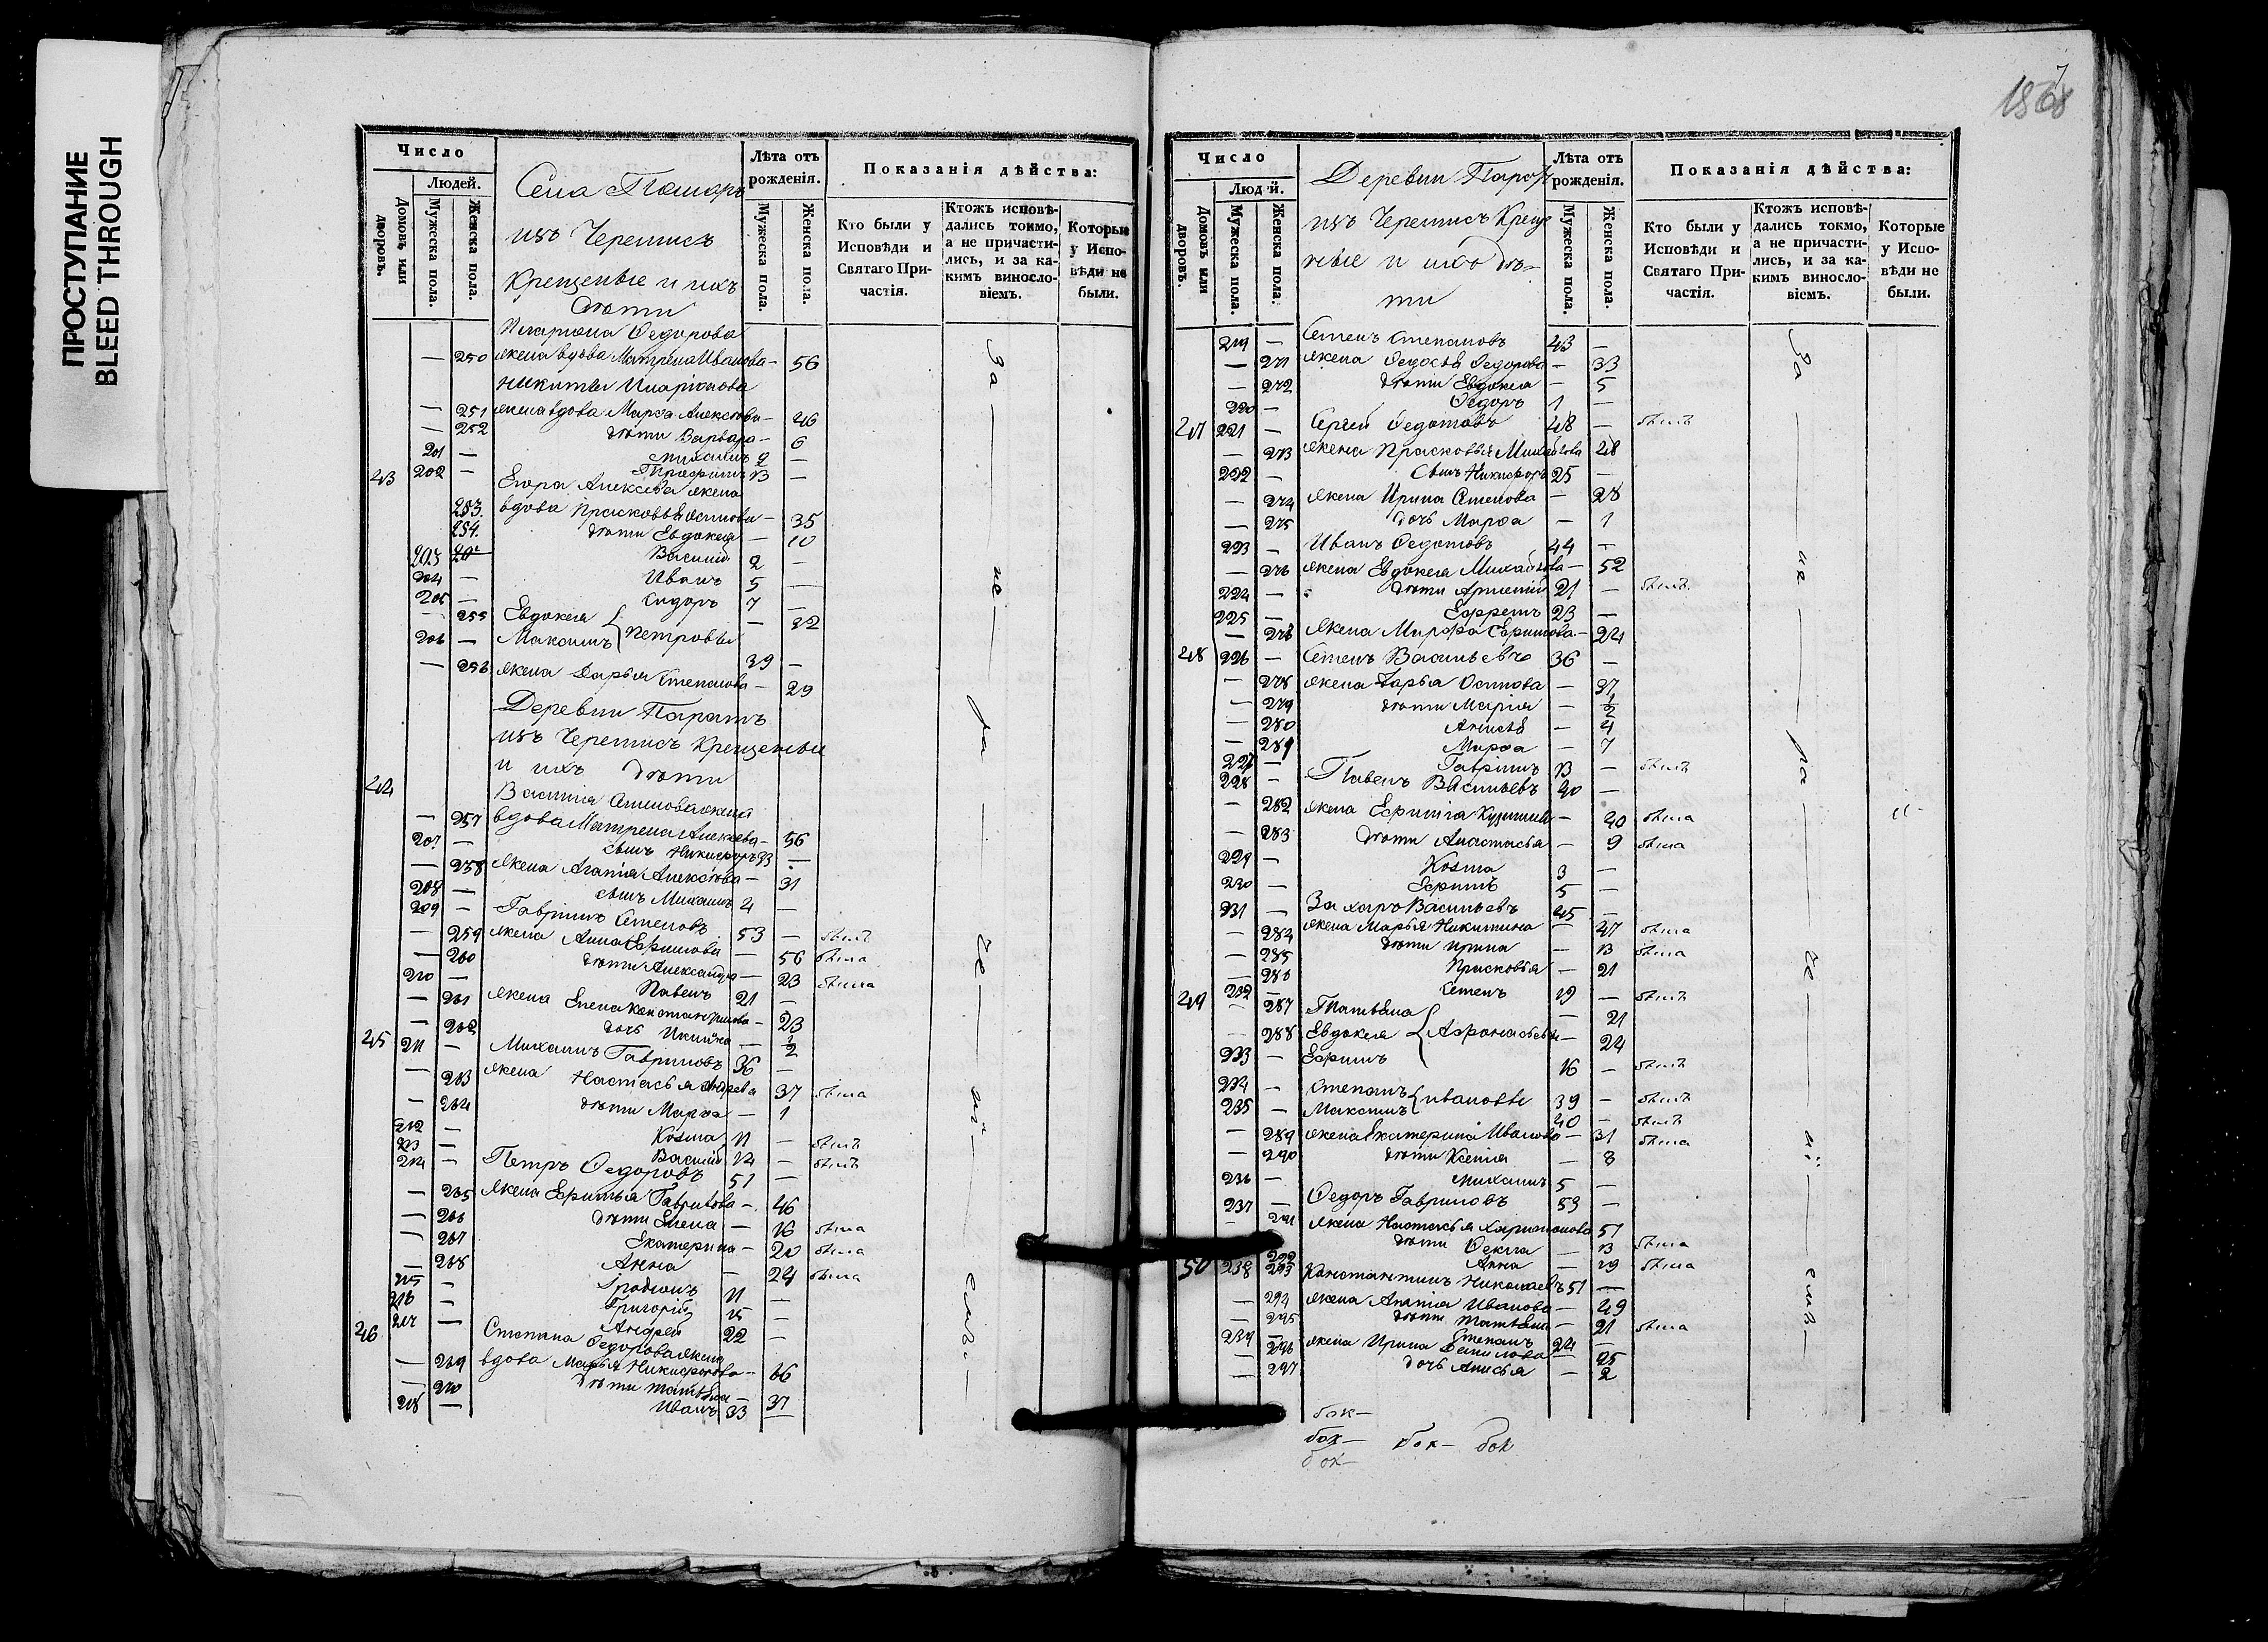 ПРОСТУПАНИЕ
BLEED THROUGH
Число
Людей.
Домовъ или дворовъ.
Мужеска пола.
Женска пола.
Села
изъ Черемисъ
Крещеные и ихъ
дѣти
Лѣта отъ рожденія.
Мужеска пола.
Женска пола.
Показанія дѣйства:
Кто были у Исповѣди и Святаго Причастія.
Ктожъ исповѣдались токмо, а не причастились, и за какимъ винословіемъ.
Которые у Исповѣди не были.
Иларіона Ѳедорова
— 250 жена вдова Матрена Иванова — 56
Никиты Иларіонова
— 251 жена вдова Марѳа Алексѣева — 46
— 252 дѣти Варвара — 6
201 — Михаилъ 9 —
202 — Трофимъ 13 —
43 Егора Алексѣева жена
253. вдова Прасковья Осипова — 35
254. дѣти Евдокея — 10
203 Василій 2 —
204 — Иванъ 5 —
205 — Сидоръ 7 —
255 Евдокея — 22
206 — Максимъ Петровы 39 —
— 256 жена Дарья Степанова — 29
Деревни Паратъ
изъ Черемисъ Крещеные
и ихъ дѣти
44 Василія Семенова жена
— 257 вдова Матрена Алексѣева — 56
207 — сынъ Никифоръ 33 —
— 258 жена Агапія Алексѣева — 31
208 — сынъ Михаилъ 4 —
209 — Гаврилъ Семеновъ 53 — былъ
— 259 жена Анна Ефимова — 56 была
— 260 дѣти Александра — 23 была
210 — Павелъ 21 —
— 261 жена Елена Константинова — 23
— 262 дочь
45 211 — Михаилъ Гавриловъ 36 —
— 263 жена Настасья Андреева 37 была
— 264 дѣти Марѳа — 1
212 — Козма 11 — былъ
213 — Василій 14 — былъ
214 — Петръ Ѳедоровъ 51 —
— 265 жена Ефимья Гаврилова — 46
— 266 дѣти Елена — 16 была
— 267 Екатерина — 20 была
— 268 Анна — 24 была
215 — Родіонъ 11 —
216 — Григорій 15 —
217 — Андрей 22 —
46 Степана Ѳедорова жена
— 269 вдова Марья Никифорова — 66
— 270 дѣти Татьяна — 37
218 — Иванъ 33 —
За не ра че ні емъ.
1868
7
Число
Людей.
Домовъ или дворовъ.
Мужеска пола.
Женска пола.
Деревни Парат
изъ Черемисъ Креще
ные и ихъ дѣ-
ти
Лѣта отъ рожденія.
Мужеска пола.
Женска пола.
Показанія дѣйства:
Кто были у Исповѣди и Святаго Причастія.
Ктожъ исповѣдались токмо, а не причастились, и за какимъ винословіемъ.
Которые у Исповѣди не были.
219 — Семенъ Степановъ 43 —
— 271 жена Ѳедосья Ѳедорова — 33
— 272 дѣти Евдокея — 5
220 — Ѳедоръ 1 —
47 221 — Сергей Ѳедотовъ 48 — былъ
— 273 жена Прасковья Михайлова 48
222 — сынъ Никифоръ 25 —
— 274 жена Ирина Семенова — 28
— 275 дочь Марѳа — 1
223 — Иванъ Ѳедотовъ 44 —
— 276 жена Евдокея Михайлова — 52
224 — дѣти Артемій 21 — былъ.
225 — Ефремъ 23 —
— 277 жена Марѳа Ефимова — 24
48 226 — Семенъ Васильевъ 36 —
— 278 жена Дарья Осипова — 37
— 279 дѣти Марія — ½
— 280 Анисья — 4
— 281 Марѳа — 7
227 — Гаврилъ 13 — былъ
228 — Павелъ Васильевъ 40 —
— 282 жена Ефимія — 40 была
— 283 дѣти Анастасья — 9 была
229 — Козма 3 —
230 — Ефимъ 5 —
231 — Захаръ Васильевъ 45 —
— 284 жена Марья Никитина — 47 была
— 285 дѣти Ирина — 13 была
— 286 Прасковья — 21
232 — Семенъ 19 — былъ
49 — 287 Татьяна — 21
— 288 Евдокея Афонасьевы — 24
233 — Ефимъ 16 — былъ
234 — Степанъ 39 — былъ
235 — Максимъ Ивановы 40 — былъ
— 289 жена Екатерина Иванова — 31 была
— 290 дѣти Ксенія — 8
236 — Михаилъ 5 —
237 — Ѳедоръ Гавриловъ 53 —
— 291 жена Настасья Харитонова 51
292 дѣти Ѳекла — 13 была
293 Анна — 19 была
50 238 Константинъ Николаевъ 51 —
— 294 жена Агапія Иванова — 49
— 295 дѣти Татьяна — 21 была
239 — Степанъ 24 —
— 296 жена Ирина — 25
— 297 дочь Анисья — 2
За не ра че ні емъ —
бок—
бок— бок— бок
бок—